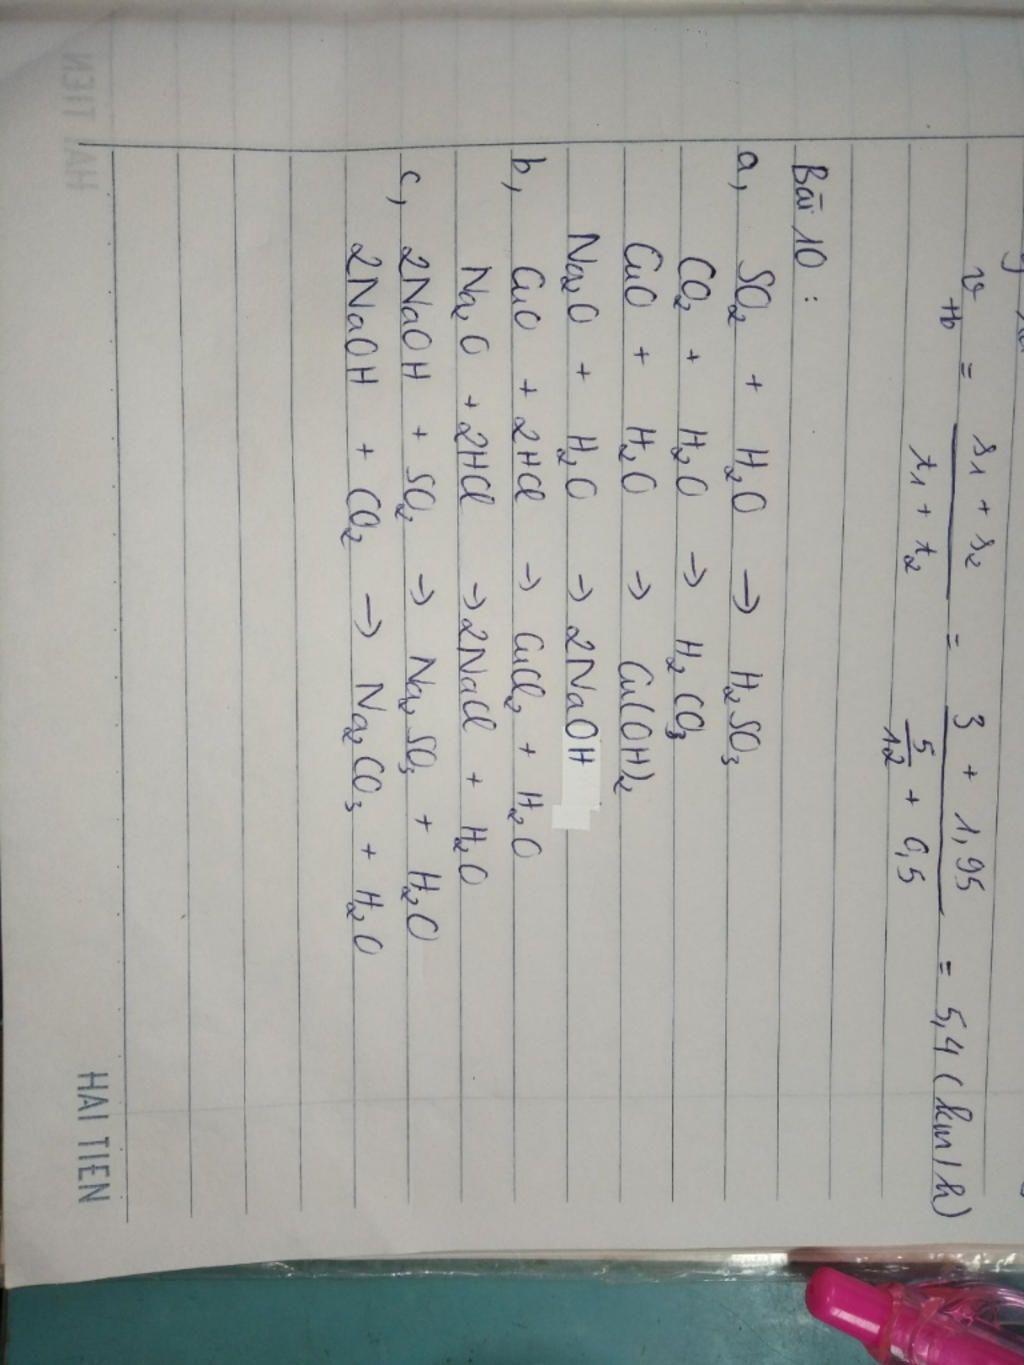 v_tb = (s₁ + s₂)/(t₁ + t₂) = (3 + 1,95)/(5/12 + 0,5) = 5,4 (km/h)
Bài 10 :
a, SO₂ + H₂O → H₂SO₃
CO₂ + H₂O → H₂CO₃
CuO + H₂O → Cu(OH)₂
Na₂O + H₂O → 2NaOH
b, CuO + 2HCl → CuCl₂ + H₂O
Na₂O + 2HCl → 2NaCl + H₂O
c, 2NaOH + SO₂ → Na₂SO₃ + H₂O
2NaOH + CO₂ → Na₂CO₃ + H₂O
HAI TIEN